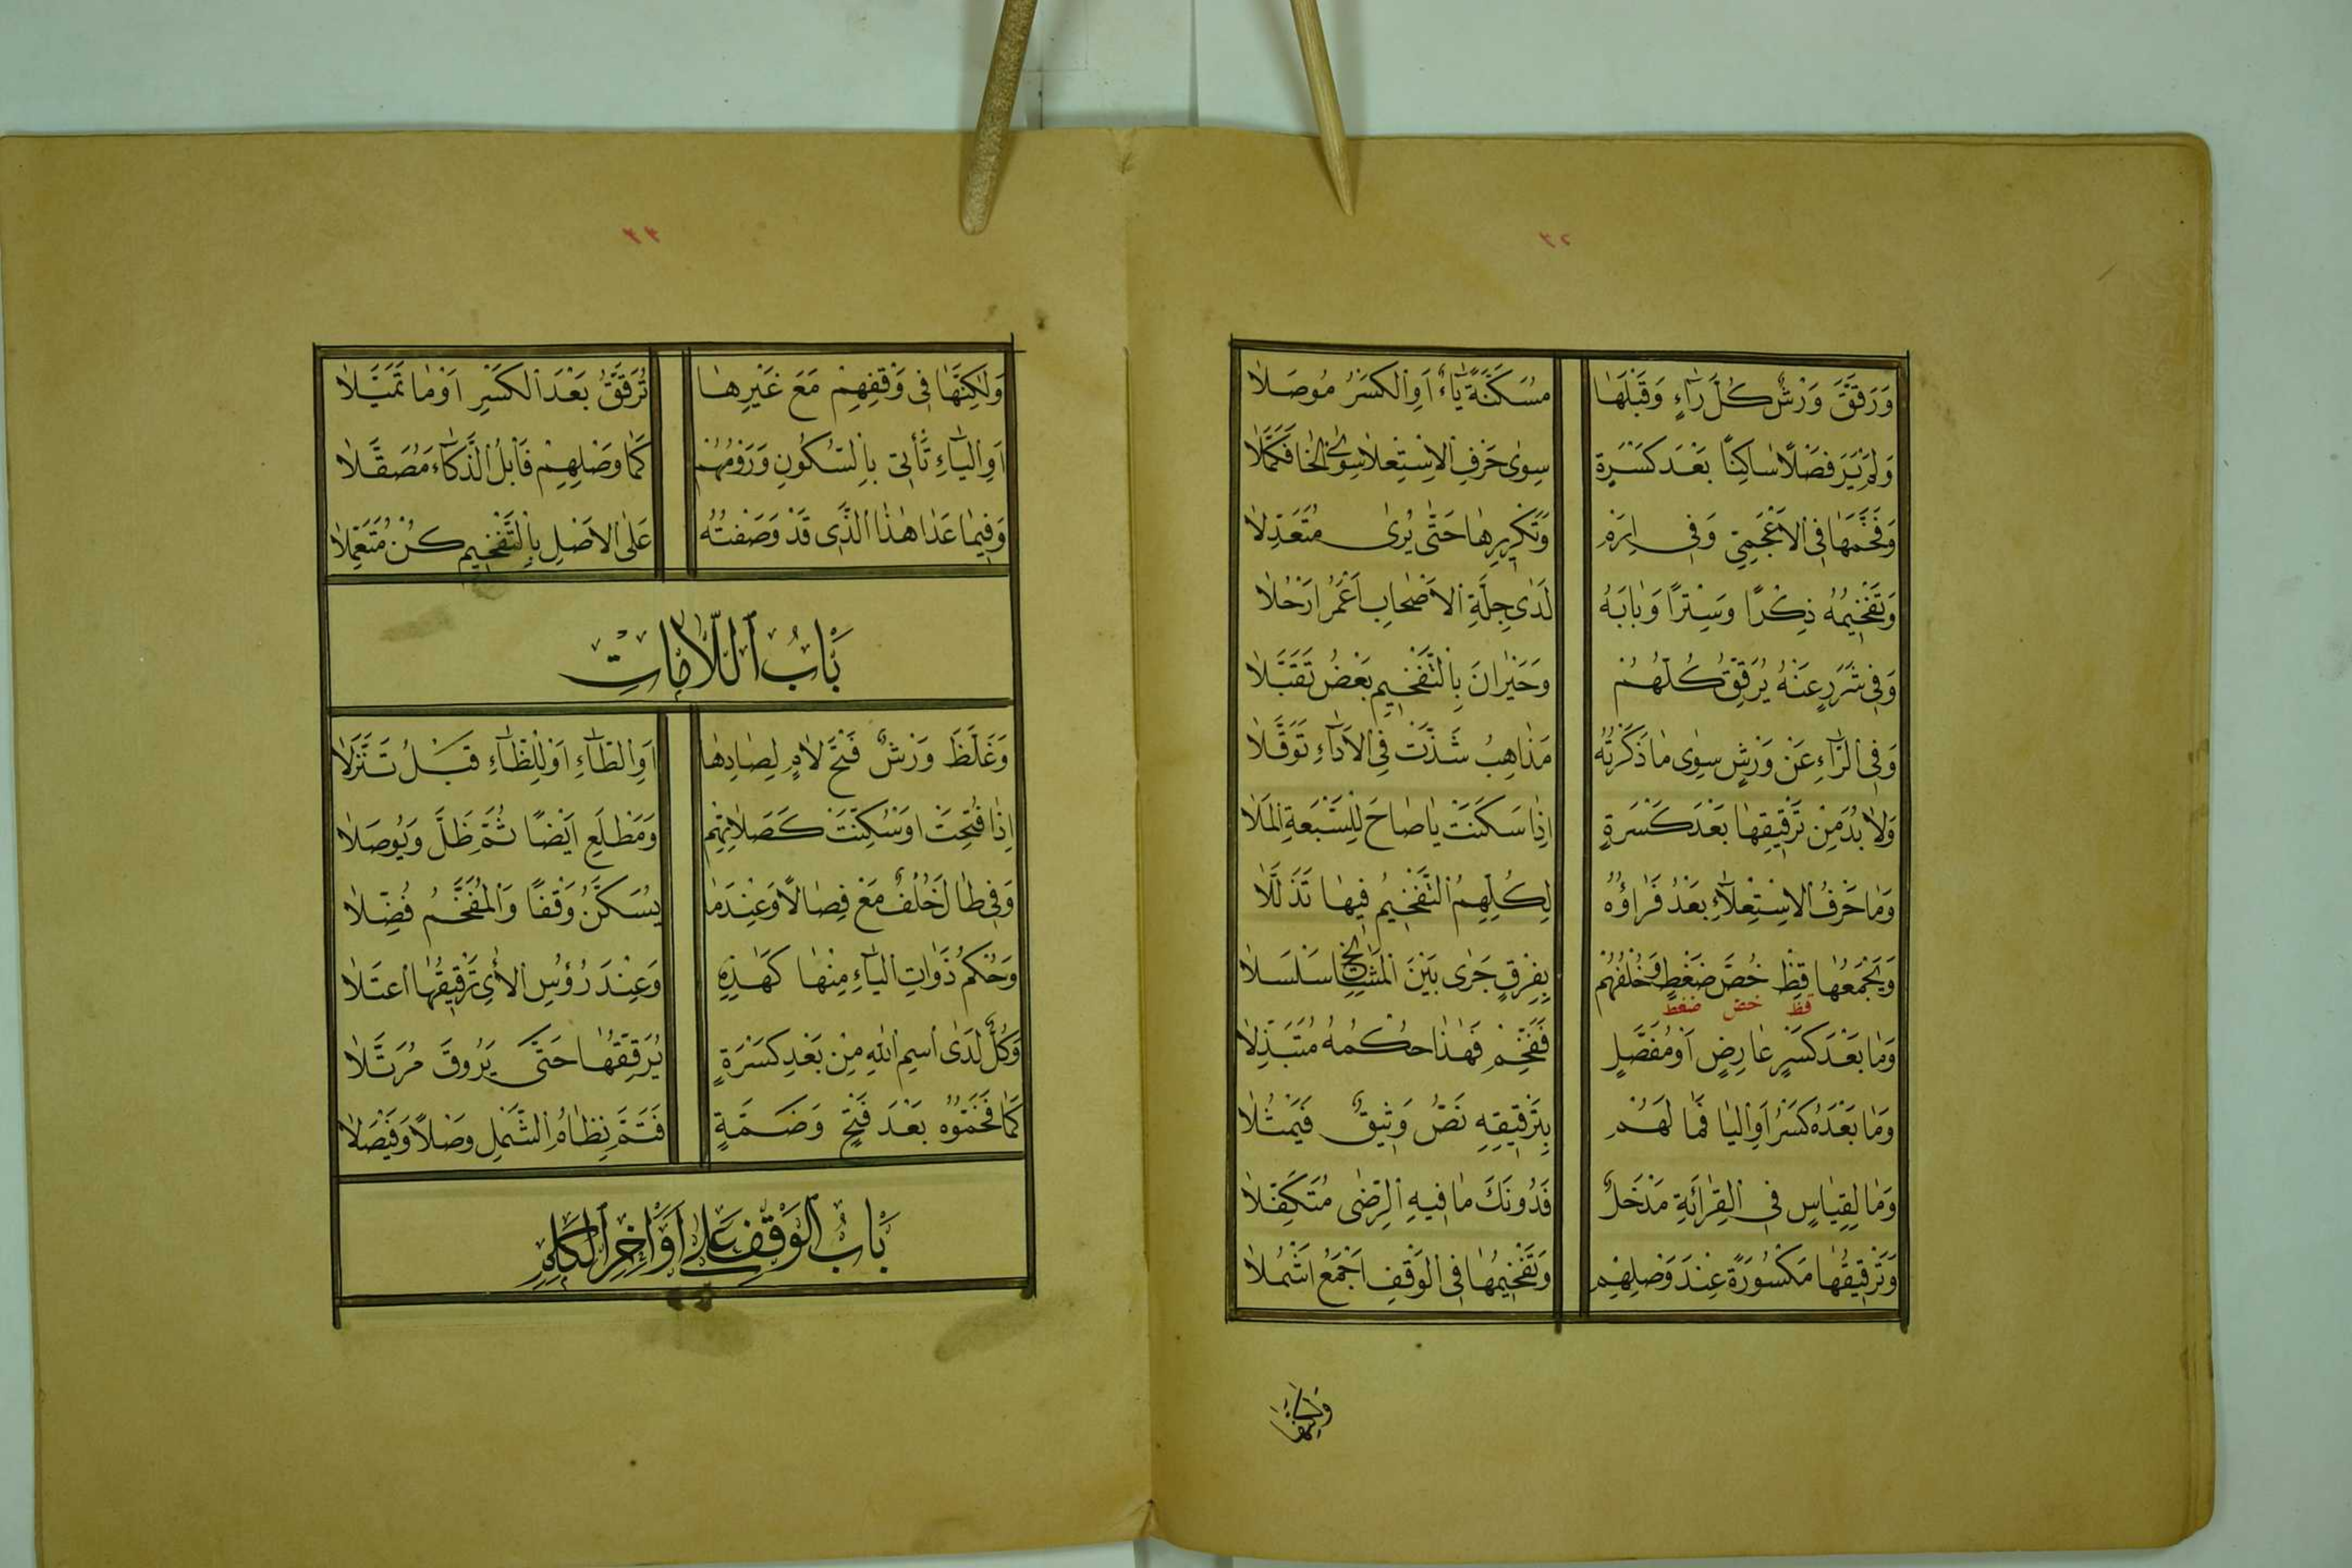 ٣٢
وَرَقَّقَ وَرْشٌ كُلَّ رَاءٍ وَقَبْلَهَا مُسَكَّنَةً يَاءٌ اَوِ الْكَسْرُ مُوصَلَا
وَلَمْ يَرَ فَصْلًا سَاكِنًا بَعْدَ كَسْرَةٍ سِوٰى حَرْفِ الْاِسْتِعْلَا سِوَى الْخَا فَكَمَّلَا
وَفَخَّمَهَا فِى الْاَعْجَمِيِّ وَفِى اِرَمْ وَتَكْرِيرِهَا حَتّٰى يُرٰى مُتَعَدِّلَا
وَتَفْخِيمُهُ ذِكْرًا وَسِتْرًا وَبَابَهُ لَدٰى جِلَّةِ الْاَصْحَابِ اَعْمَرُ اَرْحُلَا
وَفِى شَرَرٍ عَنْهُ يُرَقِّقُ كُلُّهُمْ وَحَيْرَانَ بِالتَّفْخِيمِ بَعْضٌ تَقَبَّلَا
وَفِى الرَّاءِ عَنْ وَرْشٍ سِوٰى مَا ذَكَرْتُهُ مَذَاهِبُ شَذَّتْ فِى الْاَدَاءِ تَوَقُّلَا
وَلَا بُدَّ مِنْ تَرْقِيقِهَا بَعْدَ كَسْرَةٍ اِذَا سَكَنَتْ يَا صَاحِ لِلسَّبْعَةِ الْمَلَا
وَمَا حَرْفُ الْاِسْتِعْلَاءِ بَعْدُ فَرَاؤُهُ لِكُلِّهِمُ التَّفْخِيمُ فِيهَا تَذَلَّلَا
وَيَجْمَعُهَا قِظْ خُصَّ ضَغْطٍ وَخُلْفُهُمْ بِفِرْقٍ جَرٰى بَيْنَ الْمَشَايِخِ سَلْسَلَا
قظ خص ضغط
وَمَا بَعْدَ كَسْرٍ عَارِضٍ اَوْ مُفَصَّلٍ فَفَخِّمْ فَهٰذَا حُكْمُهُ مُتَبَذِّلَا
وَمَا بَعْدَهُ كَسْرٌ اَوِ الْيَا فَمَا لَهُمْ بِتَرْقِيقِهِ نَصٌّ وَثِيقٌ فَيَمْثُلَا
وَمَا لِقِيَاسٍ فِى الْقِرَائَةِ مَدْخَلٌ فَدُونَكَ مَا فِيهِ الرِّضٰى مُتَكَفِّلَا
وَتَرْقِيقُهَا مَكْسُورَةً عِنْدَ وَصْلِهِمْ وَتَفْخِيمُهَا فِى الْوَقْفِ اَجْمَعُ اَشْمُلَا
وَلٰكِنَّهَا
٣٣
وَلٰكِنَّهَا فِى وَقْفِهِمْ مَعَ غَيْرِهَا تُرَقَّقُ بَعْدَ الْكَسْرِ اَوْ مَا تَمَيَّلَا
اَوِ الْيَاءِ تَأْتِى بِالسُّكُونِ وَرَوْمُهُمْ كَمَا وَصْلِهِمْ فَابْلُ الذَّكَاءَ مُصَقَّلَا
وَفِيمَا عَدَا هٰذَا الَّذِى قَدْ وَصَفْتُهُ عَلَى الْاَصْلِ بِالتَّفْخِيمِ كُنْ مُتَعَمِّلَا
بَابُ اللَّامَاتِ
وَغَلَّظَ وَرْشٌ فَتْحَ لَامٍ لِصَادِهَا اَوِ الطَّاءِ اَوْ لِلظَّاءِ قَبْلُ تَنَزُّلَا
اِذَا فُتِحَتْ اَوْ سُكِّنَتْ كَصَلَاتِهِمْ وَمَطْلَعِ اَيْضًا ثُمَّ ظَلَّ وَيُوصَلَا
وَفِى طَالَ خُلْفٌ مَعْ فِصَالًا وَعِنْدَمَا يُسَكَّنُ وَقْفًا وَالْمُفَخَّمُ فُضِّلَا
وَحُكْمُ ذَوَاتِ الْيَاءِ مِنْهَا كَهٰذِهِ وَعِنْدَ رُؤُسِ الْاٰىِ تَرْقِيقُهَا اعْتَلَا
وَكُلٌّ لَدَى اسْمِ اللهِ مِنْ بَعْدِ كَسْرَةٍ يُرَقِّقُهَا حَتّٰى يَرُوقَ مُرَتَّلَا
كَمَا فَخَّمُوهُ بَعْدَ فَتْحٍ وَضَمَّةٍ فَتَمَّ نِظَامُ الشَّمْلِ وَصْلًا وَفَيْصَلَا
بَابُ الْوَقْفِ عَلٰى اَوَاخِرِ الْكَلِمِ